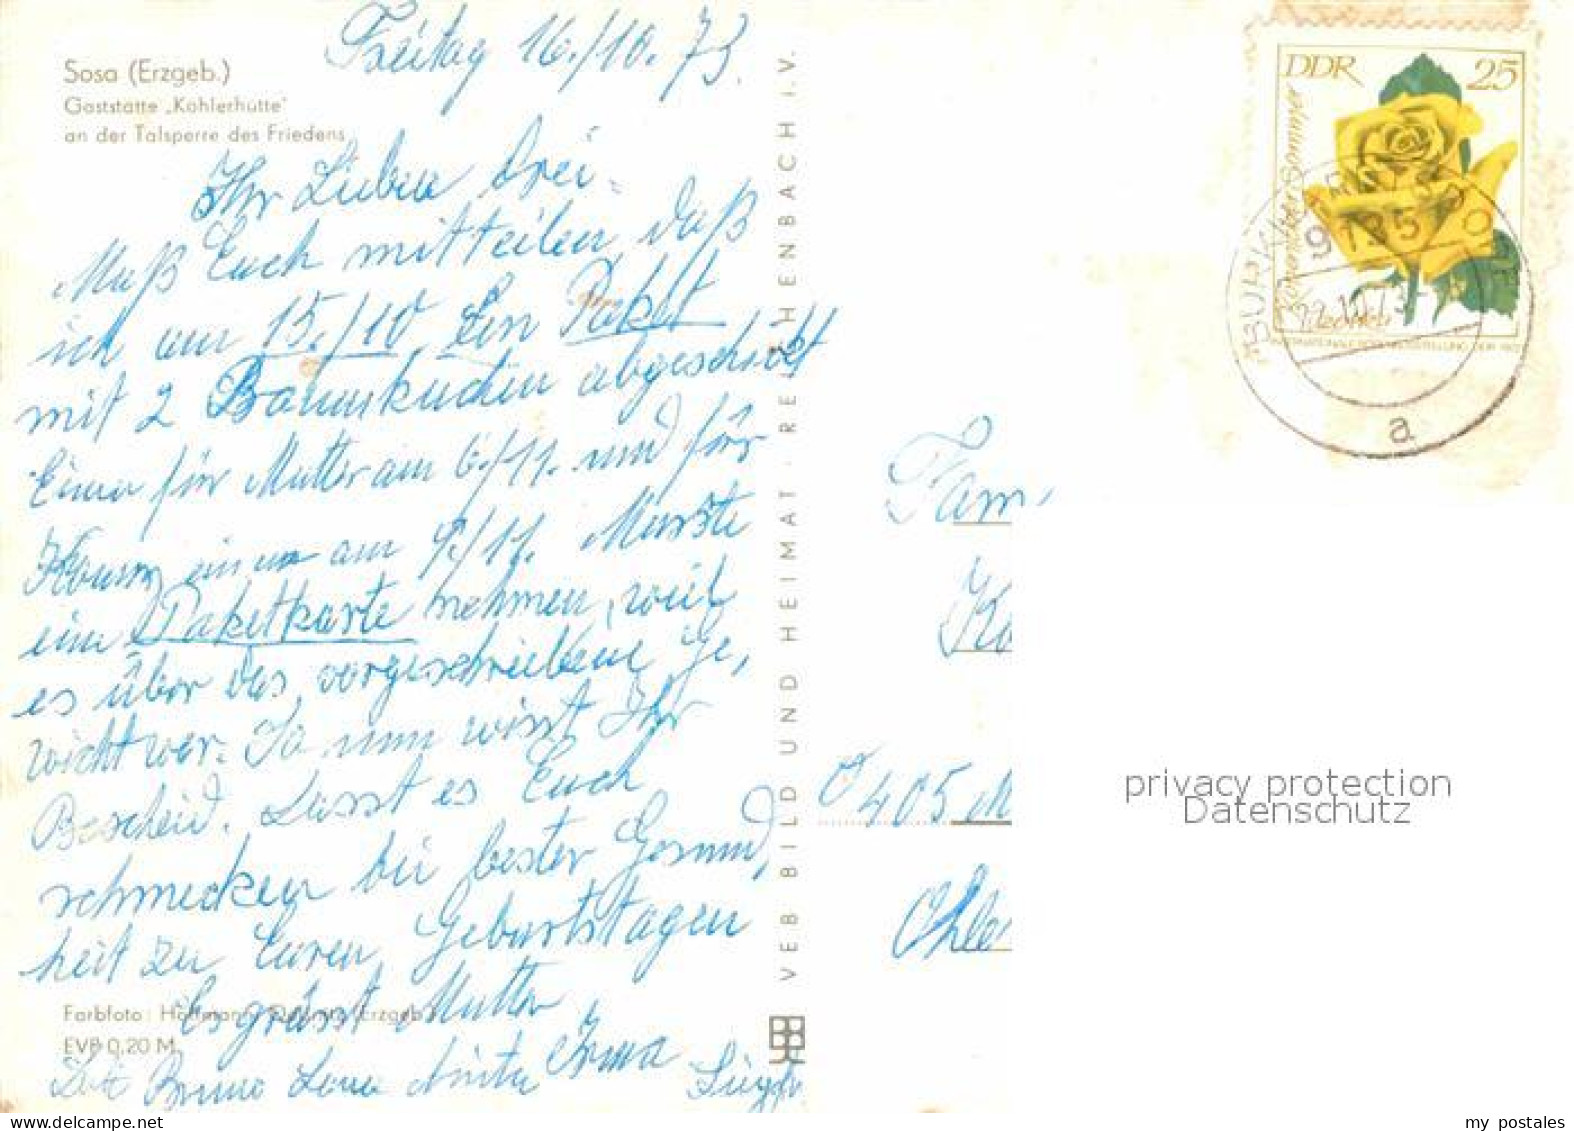 Sosa (Erzgeb.)
Gaststätte „Köhlerhütte"
an der Talsperre des Friedens
Freitag 16./10. 73.
Ihr Lieben drei.
Muß Euch mitteilen, daß
ich am 15./10 Ein Paket
mit 2 Baumkuchen abgeschickt
Einen für Mutter am 6./11. und für
einen am 9./11. Musste
eine Paketkarte nehmen, weil
es über das vorgeschriebene Ge,
wicht war. Ja nun wisst Ihr
Bescheid. Lasst es Euch
schmecken bei bester Gesund,
heit zu Euren Geburtstagen
Es grüsst Mutter
Bruno Anita Irma
Farbfoto: Hoffmann, (Erzgeb.)
EVP 0,20 M
VEB BILD UND HEIMAT REICHENBACH I. V.
DDR 25
a
Fam
405 M
privacy protection
Datenschutz
my postales